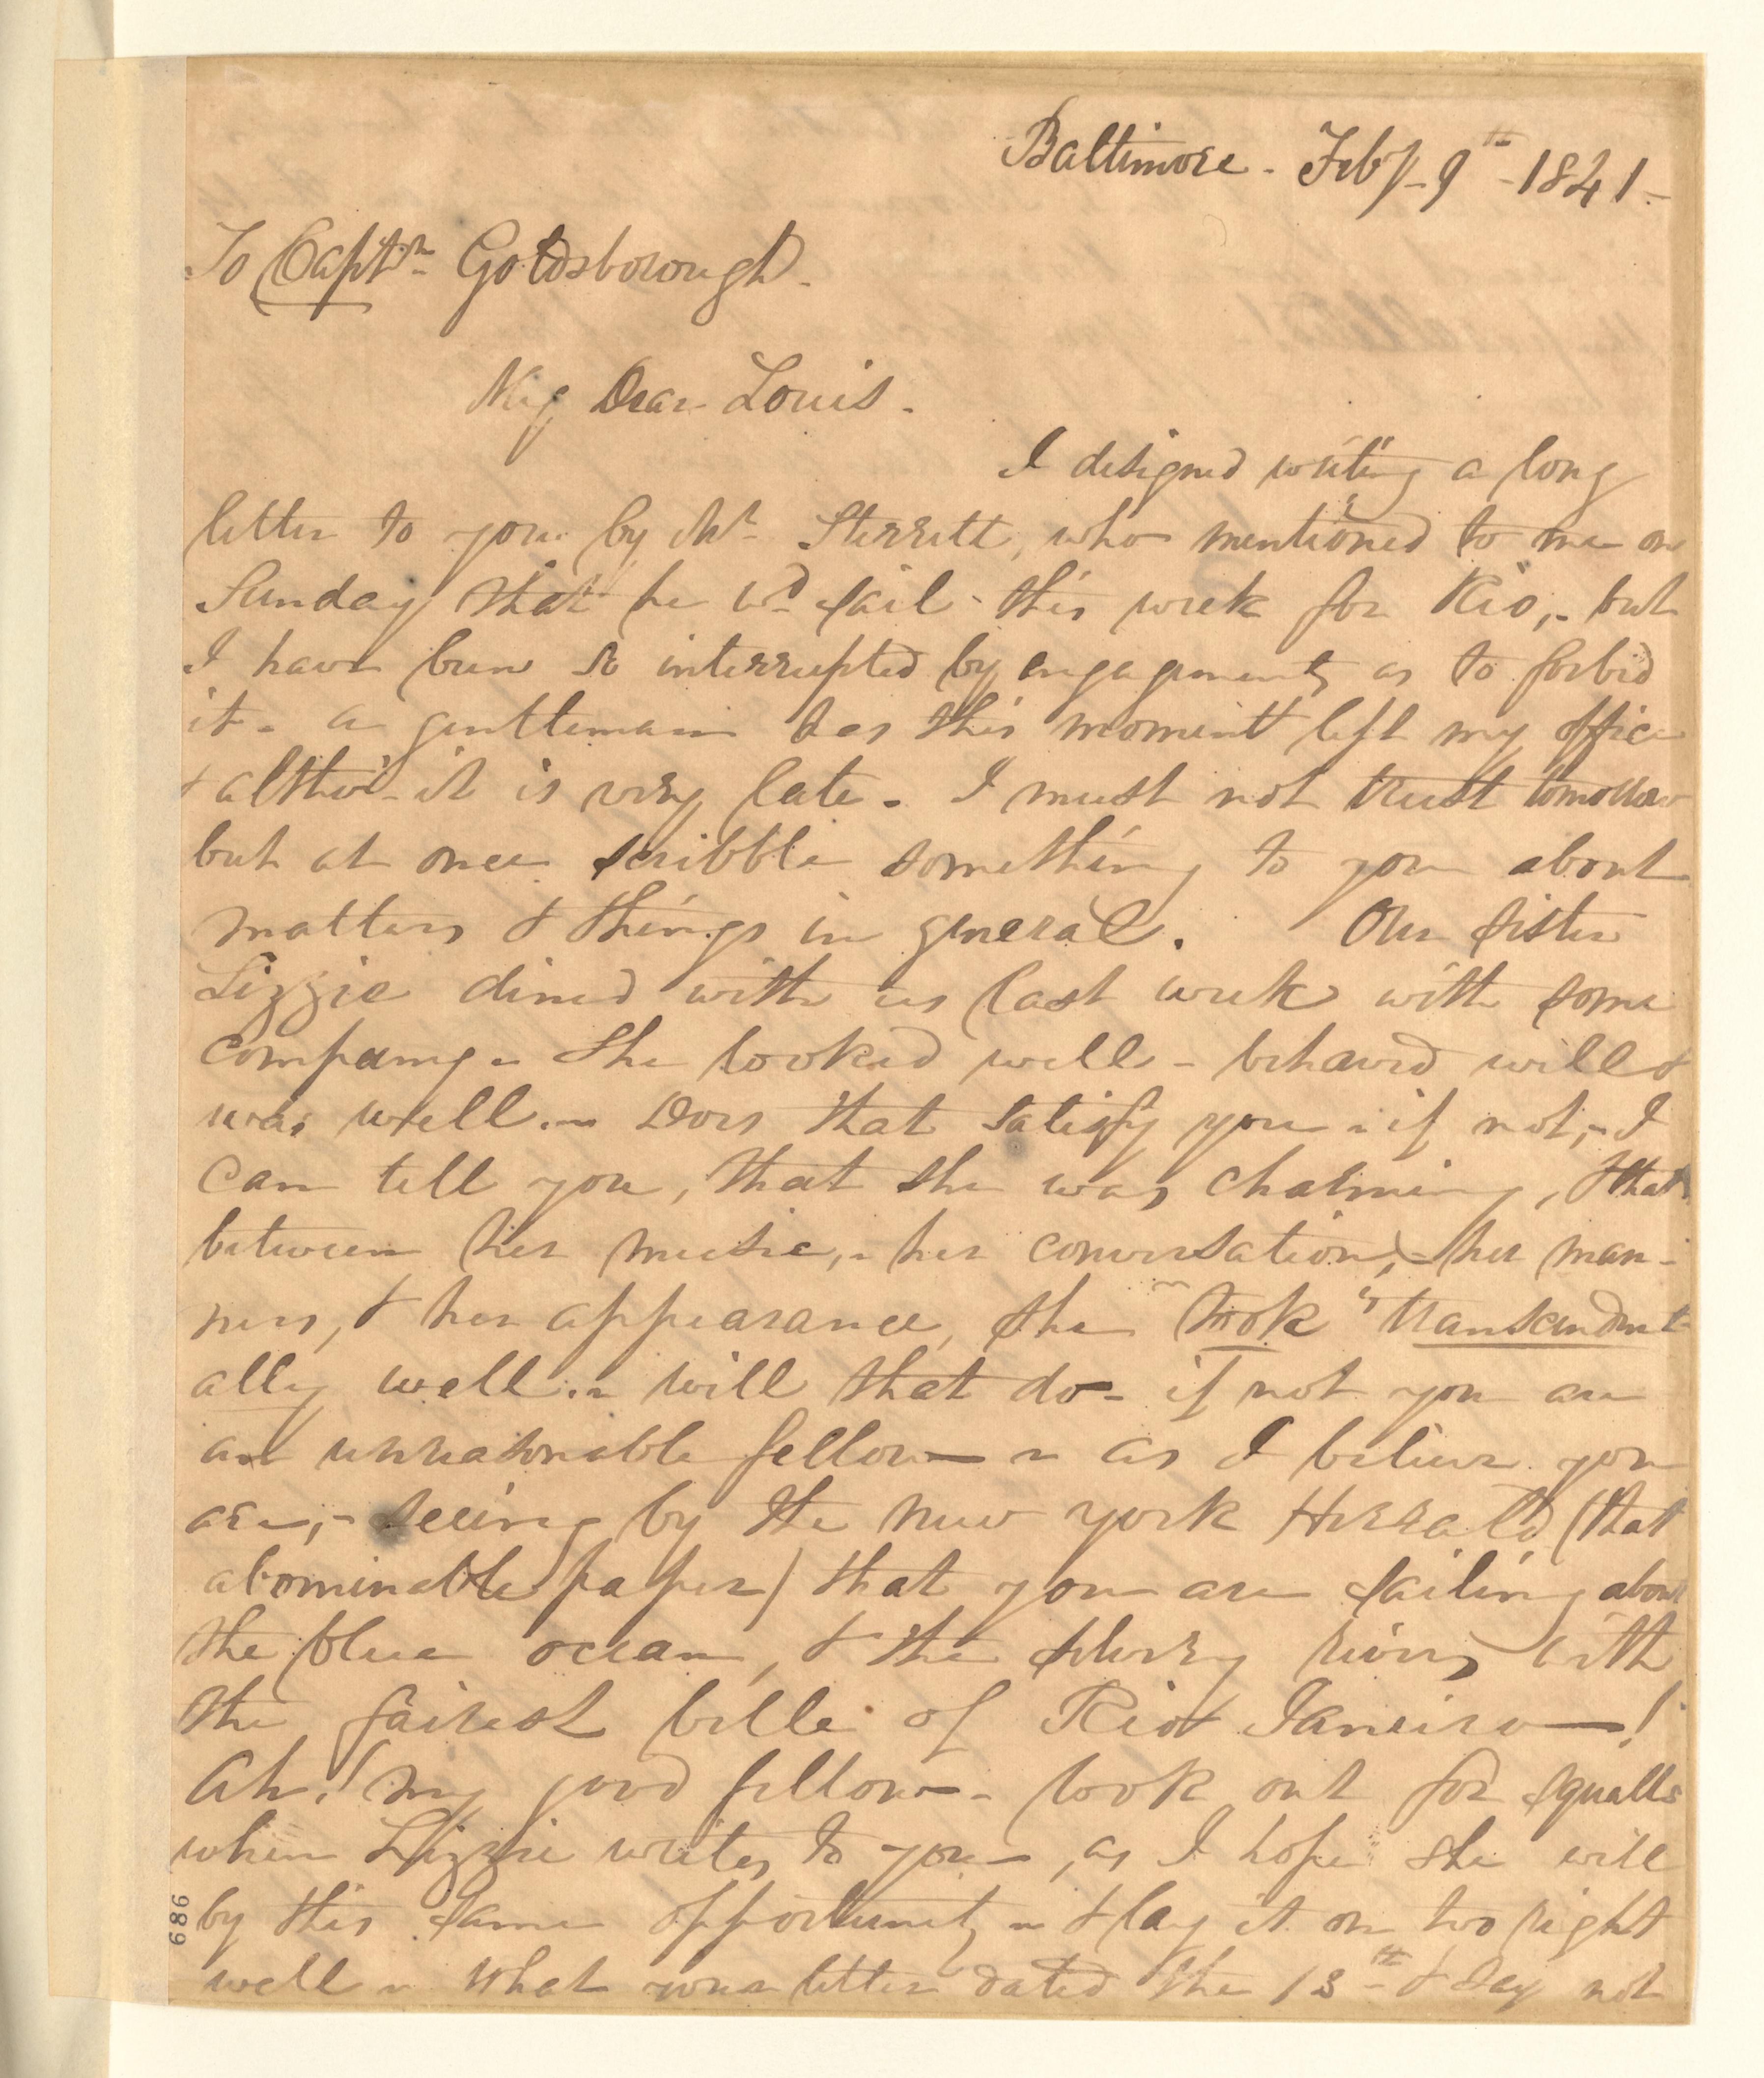 Baltimore - Feby - 9th - 1841 -
To Captn Goldsborough.
My Dear Louis.
I designed writing a long
letter to you by Mr Sterrett, who mentioned to me on
Sunday that he wd sail this week for Rio, - but
I have been so interrupted by engagements as to forbid
it - a gentleman has this moment left my office
& altho' it is very late - I must not trust tomorrow
but at once scribble something to you about
matters & things in general. Our sister
Lizzie dined with us last week with some
company - She looked well - behaved well &
was well. - Does that satisfy you - if not, - I
can tell you, that she was charming, & that
between her music, - her conversation, - her man-
ners, & her appearance, she "took" transcendent-
ally well. - will that do - if not you are
an unreasonable fellow - as I believe you
are, - seeing by the New York Herrald (that
abominable paper) that you are sailing about
the blue ocean, & the silvery rivers with
the fairest belle of Rio Janeiro - !
Ah! my good fellow - look out for squalls
when Lizzie writes to you - , as I hope she will
by this same opportunity - & lay it on too right
well - What your letter dated the 13th & say not
686